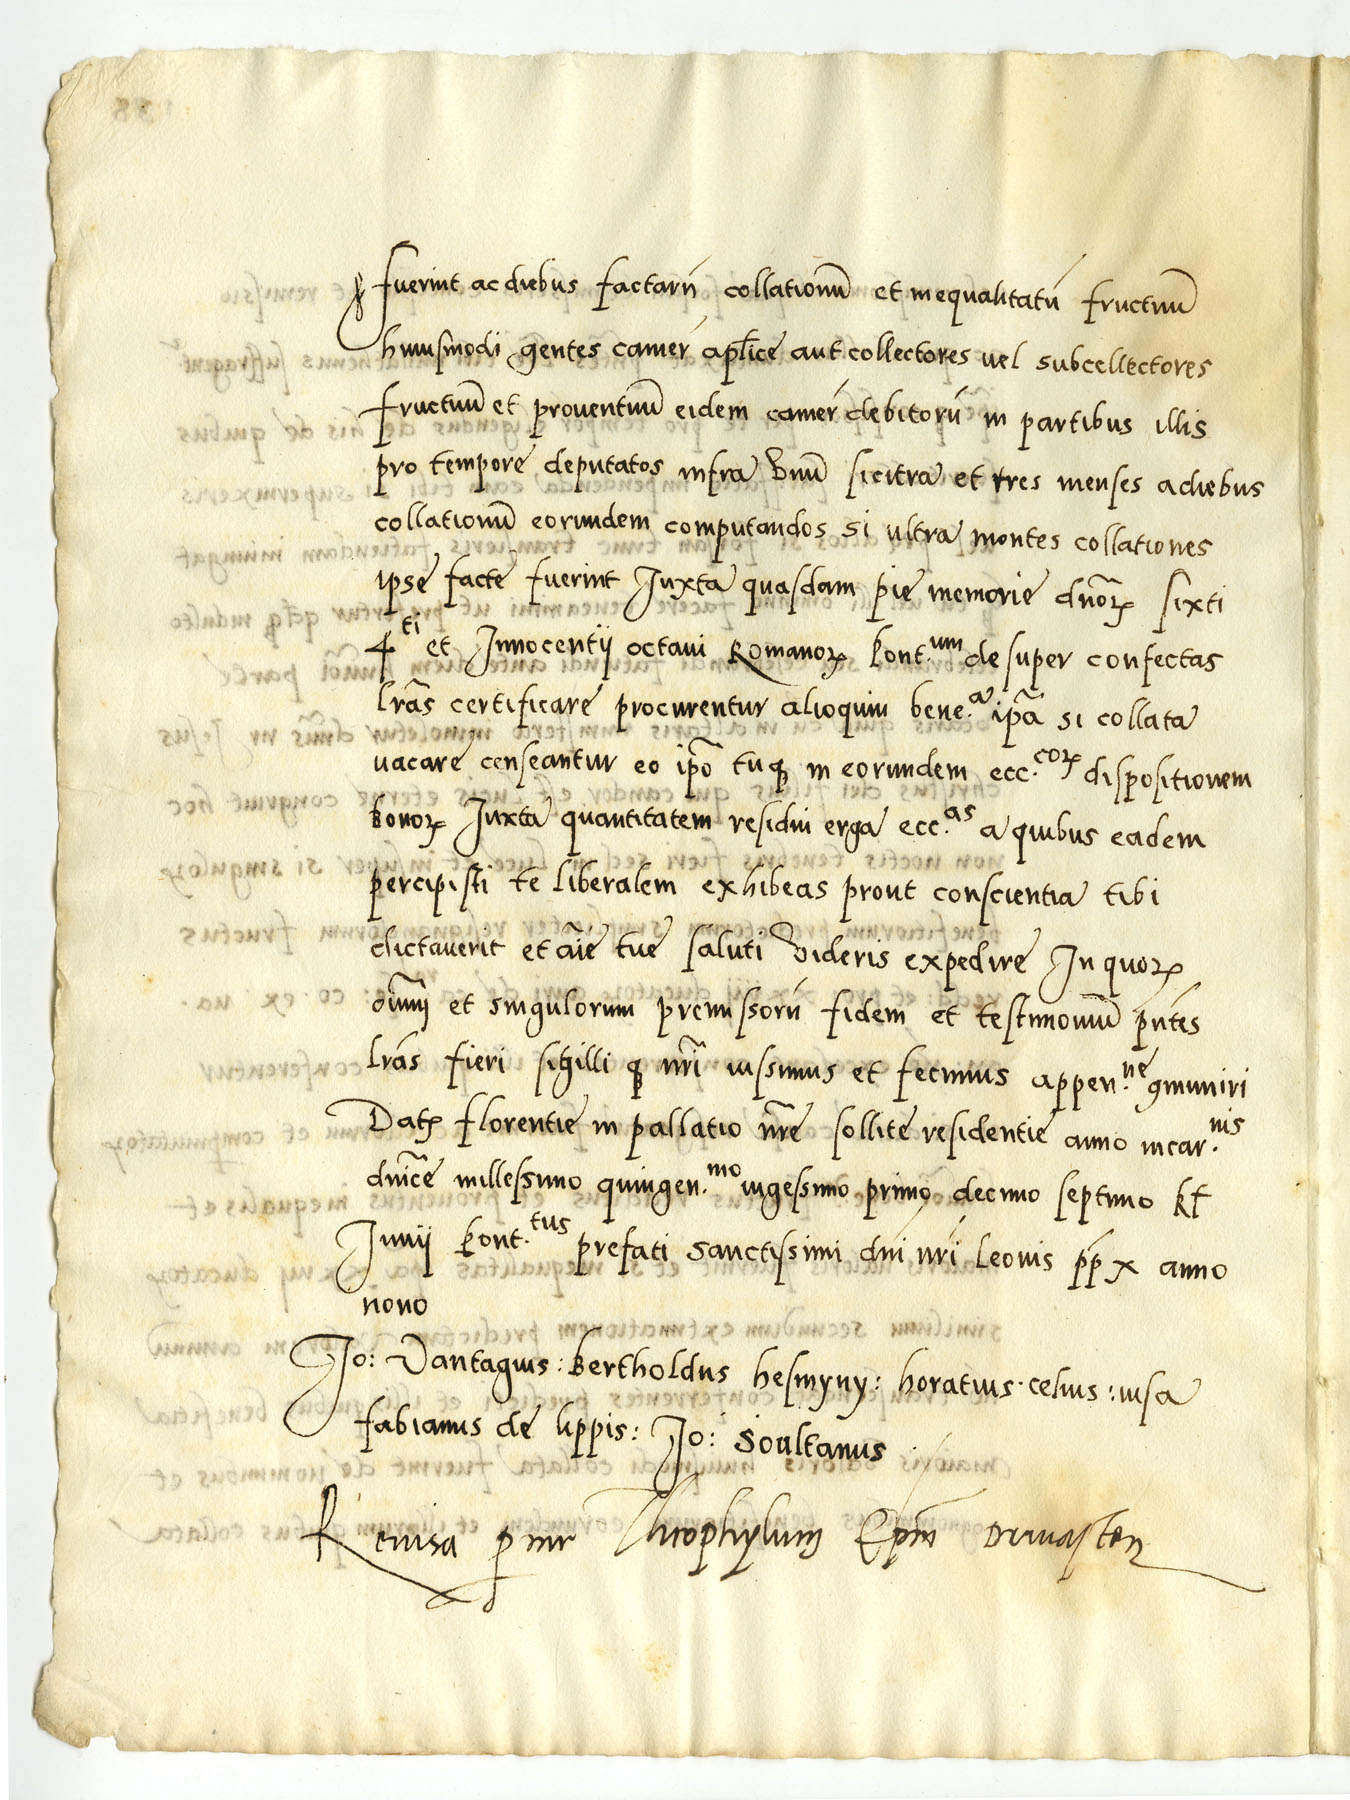 fuerint ac diebus factarū collationū et inequalitatū fructuū
huiusmodi gentes camer̄ aplice aut collectores uel subcollectores
fructuū et prouentuū eidem camer̄ debitorū in partibus illis
pro tempore deputatos infra vnū si citra et tres menses a diebus
collationū eorundem computandos si ultra montes collationes
ipse facte fuerint Juxta quasdam pie memorie dnoꝝ sixti
4ti et Innocentij octaui Romanoꝝ pont.um desuper confectas
lrās certificare procurentur alioquin bene.a ipā si collata
uacare censeantur eo ipō tuqꝫ in eorundem ecc.coꝝ dispositionem
bonoꝝ Juxta quantitatem residui erga ecc.as a quibus eadem
percipisti te liberalem exhibeas prout conscientia tibi
dictauerit et aīe tue saluti videris expedire In quoꝝ
oīuꝫ et singulorum premissorū fidem et testimoniū pn̄tes
lrās fieri sigilli qꝫ nrī iussimus et fecimus appen.ne ꝯmuniri
Datꝫ florentie in pallatio nrē sollite residentie anno incar.nis
dnīce millessimo quingen.mo uigessimo primo decimo septimo kł
Junij pont.tus prefati sanctissimi dnī nrī leonis pp x anno
nono
Jo: Vantagius: bertholdus hesmyny: horatius celius: uisa
fabianus de lippis: Jo: Soultanus
Reuisa ꝑ me Theophylum Epm̄ driuasteñ